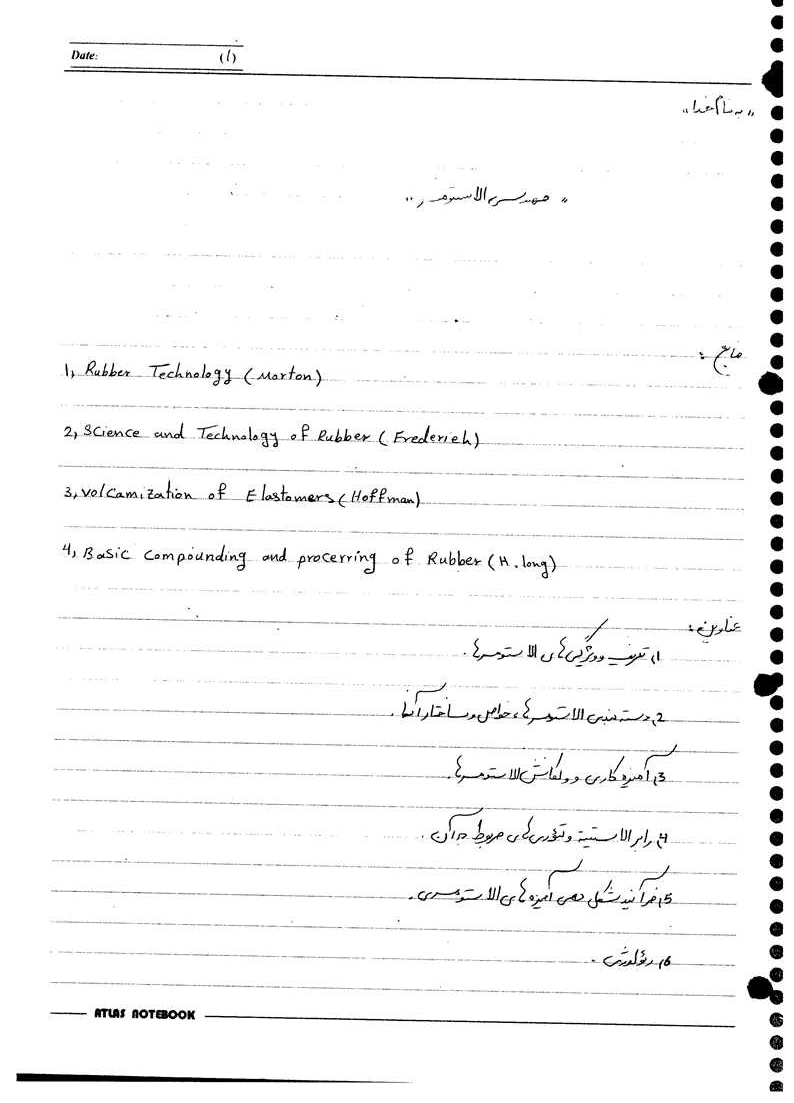 Date: (1)
"به نام خدا"
"مهندسی الاستومر"
منابع:
1, Rubber Technology (Morton)
2, Science and Technology of Rubber (Frederich)
3, volcamization of Elastomers (Hoffman)
4, Basic compounding and procerring of Rubber (H. long)
عناوین:
1, تعریف و ویژگی های الاستومرها.
2, دسته بندی الاستومرها، خواص و ساختار آنها.
3, آمیزه کاری و ولکانش الاستومرها.
4, رابر الاستیسیته و تئوری های مربوط به آن.
5, فرآیند شکل دهی آمیزه های الاستومری.
6, رئولوژی.
ATLAS NOTEBOOK